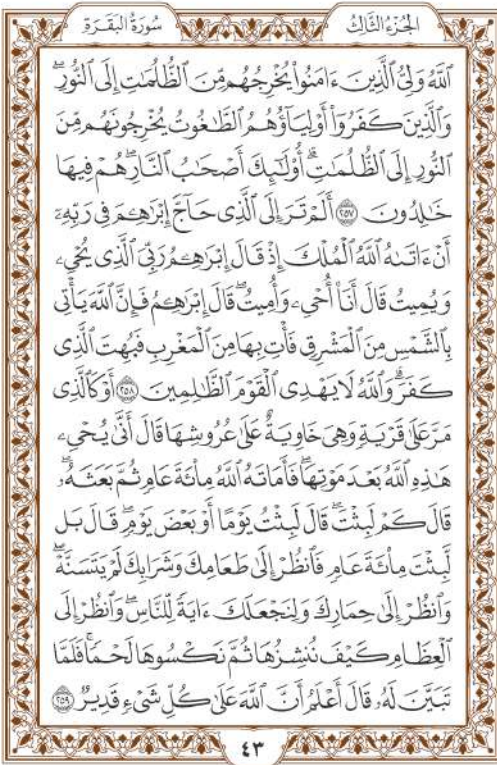 الجزء الثالث
سورة البقرة
ٱللَّهُ وَلِيُّ ٱلَّذِينَ ءَامَنُوا۟ يُخْرِجُهُم مِّنَ ٱلظُّلُمَٰتِ إِلَى ٱلنُّورِۖ
وَٱلَّذِينَ كَفَرُوٓا۟ أَوْلِيَآؤُهُمُ ٱلطَّٰغُوتُ يُخْرِجُونَهُم مِّنَ
ٱلنُّورِ إِلَى ٱلظُّلُمَٰتِۗ أُو۟لَٰٓئِكَ أَصْحَٰبُ ٱلنَّارِۖ هُمْ فِيهَا
خَٰلِدُونَ ٢٥٧ أَلَمْ تَرَ إِلَى ٱلَّذِى حَآجَّ إِبْرَٰهِـۧمَ فِى رَبِّهِۦٓ
أَنْ ءَاتَىٰهُ ٱللَّهُ ٱلْمُلْكَ إِذْ قَالَ إِبْرَٰهِـۧمُ رَبِّىَ ٱلَّذِى يُحْىِۦ
وَيُمِيتُ قَالَ أَنَا۠ أُحْىِۦ وَأُمِيتُۖ قَالَ إِبْرَٰهِـۧمُ فَإِنَّ ٱللَّهَ يَأْتِى
بِٱلشَّمْسِ مِنَ ٱلْمَشْرِقِ فَأْتِ بِهَا مِنَ ٱلْمَغْرِبِ فَبُهِتَ ٱلَّذِى
كَفَرَۗ وَٱللَّهُ لَا يَهْدِى ٱلْقَوْمَ ٱلظَّٰلِمِينَ ٢٥٨ أَوْ كَٱلَّذِى
مَرَّ عَلَىٰ قَرْيَةٍ وَهِىَ خَاوِيَةٌ عَلَىٰ عُرُوشِهَا قَالَ أَنَّىٰ يُحْىِۦ
هَٰذِهِ ٱللَّهُ بَعْدَ مَوْتِهَاۖ فَأَمَاتَهُ ٱللَّهُ مِا۟ئَةَ عَامٍ ثُمَّ بَعَثَهُۥۖ
قَالَ كَمْ لَبِثْتَۖ قَالَ لَبِثْتُ يَوْمًا أَوْ بَعْضَ يَوْمٍۖ قَالَ بَل
لَّبِثْتَ مِا۟ئَةَ عَامٍ فَٱنظُرْ إِلَىٰ طَعَامِكَ وَشَرَابِكَ لَمْ يَتَسَنَّهْۖ
وَٱنظُرْ إِلَىٰ حِمَارِكَ وَلِنَجْعَلَكَ ءَايَةً لِّلنَّاسِۖ وَٱنظُرْ إِلَى
ٱلْعِظَامِ كَيْفَ نُنشِزُهَا ثُمَّ نَكْسُوهَا لَحْمًاۚ فَلَمَّا
تَبَيَّنَ لَهُۥ قَالَ أَعْلَمُ أَنَّ ٱللَّهَ عَلَىٰ كُلِّ شَىْءٍ قَدِيرٌ ٢٥٩
٤٣